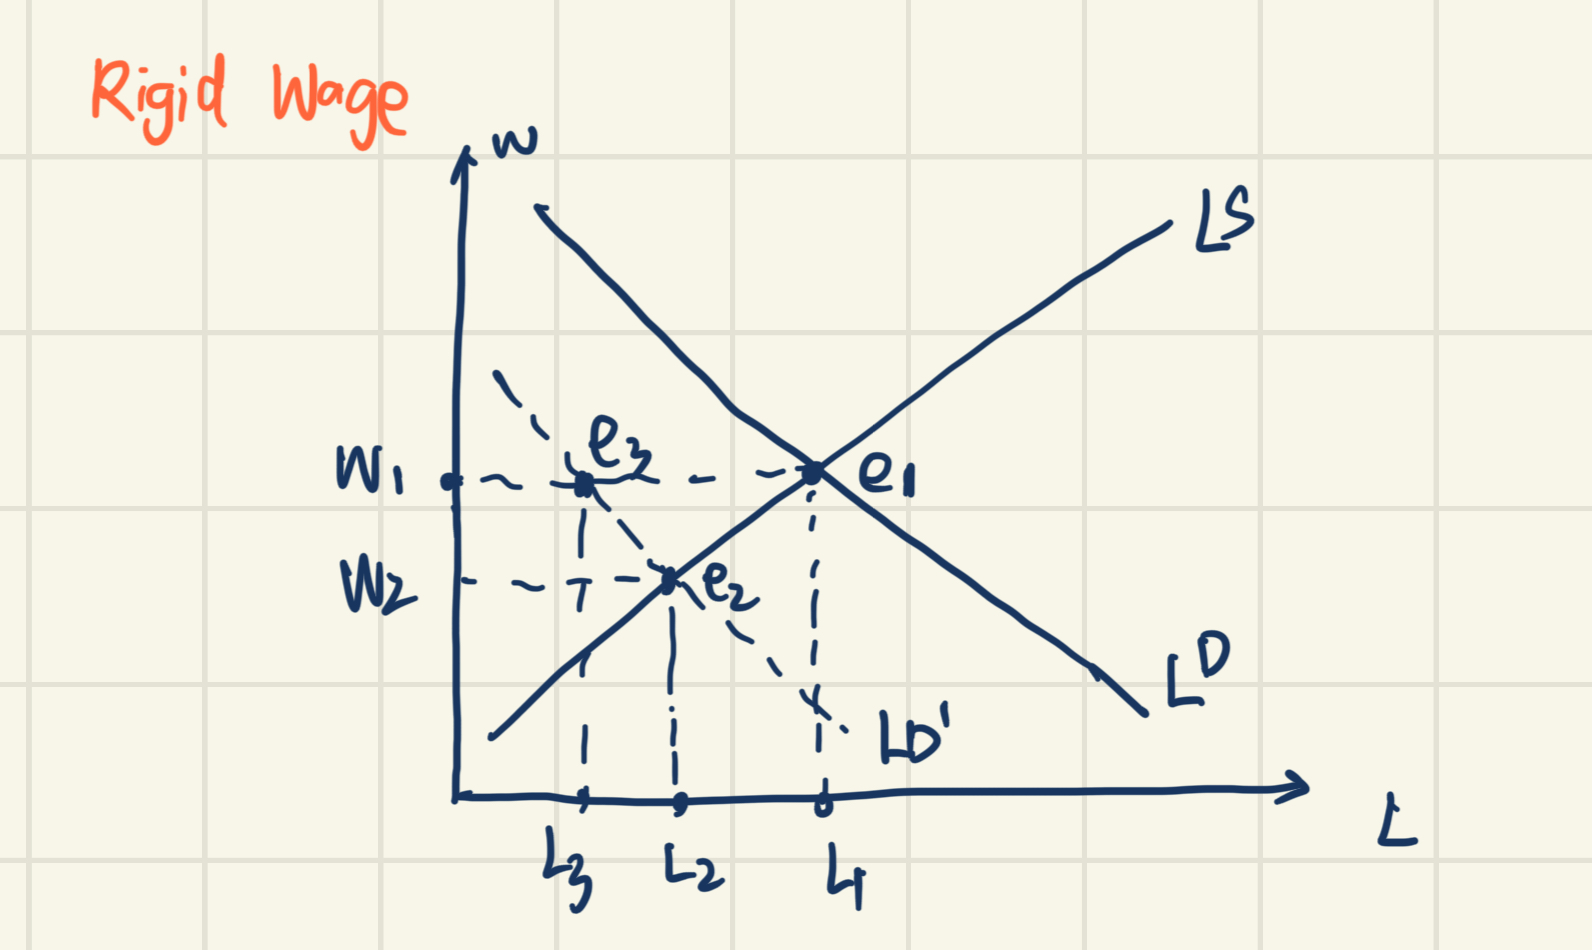 Rigid Wage
w
LS
e3
W1
e1
W2
e2
LD
LD'
L3
L2
L1
L